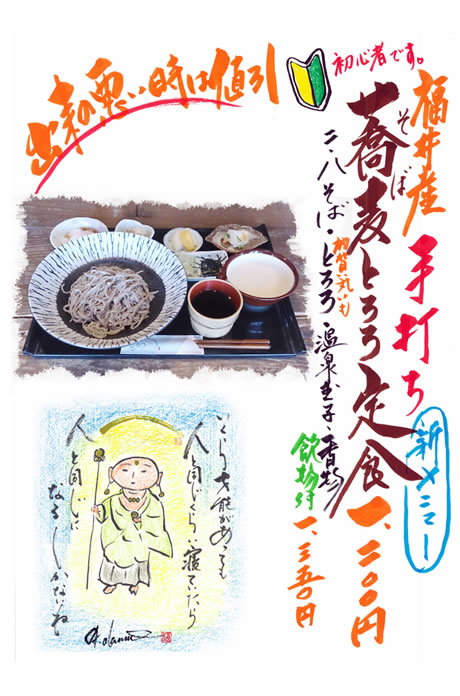 出来の悪い時は値引
初心者です。
福井産
手打ち
蕎麦とろろ定食
そば
新メニュー
一、二〇〇円
二・八そば・とろろ・温泉玉子・香物
加賀丸いも
飲物付
一、三五〇円
いくら才能があっても
人と同じくらい寝ていたら
人と同じに
なるしかないね